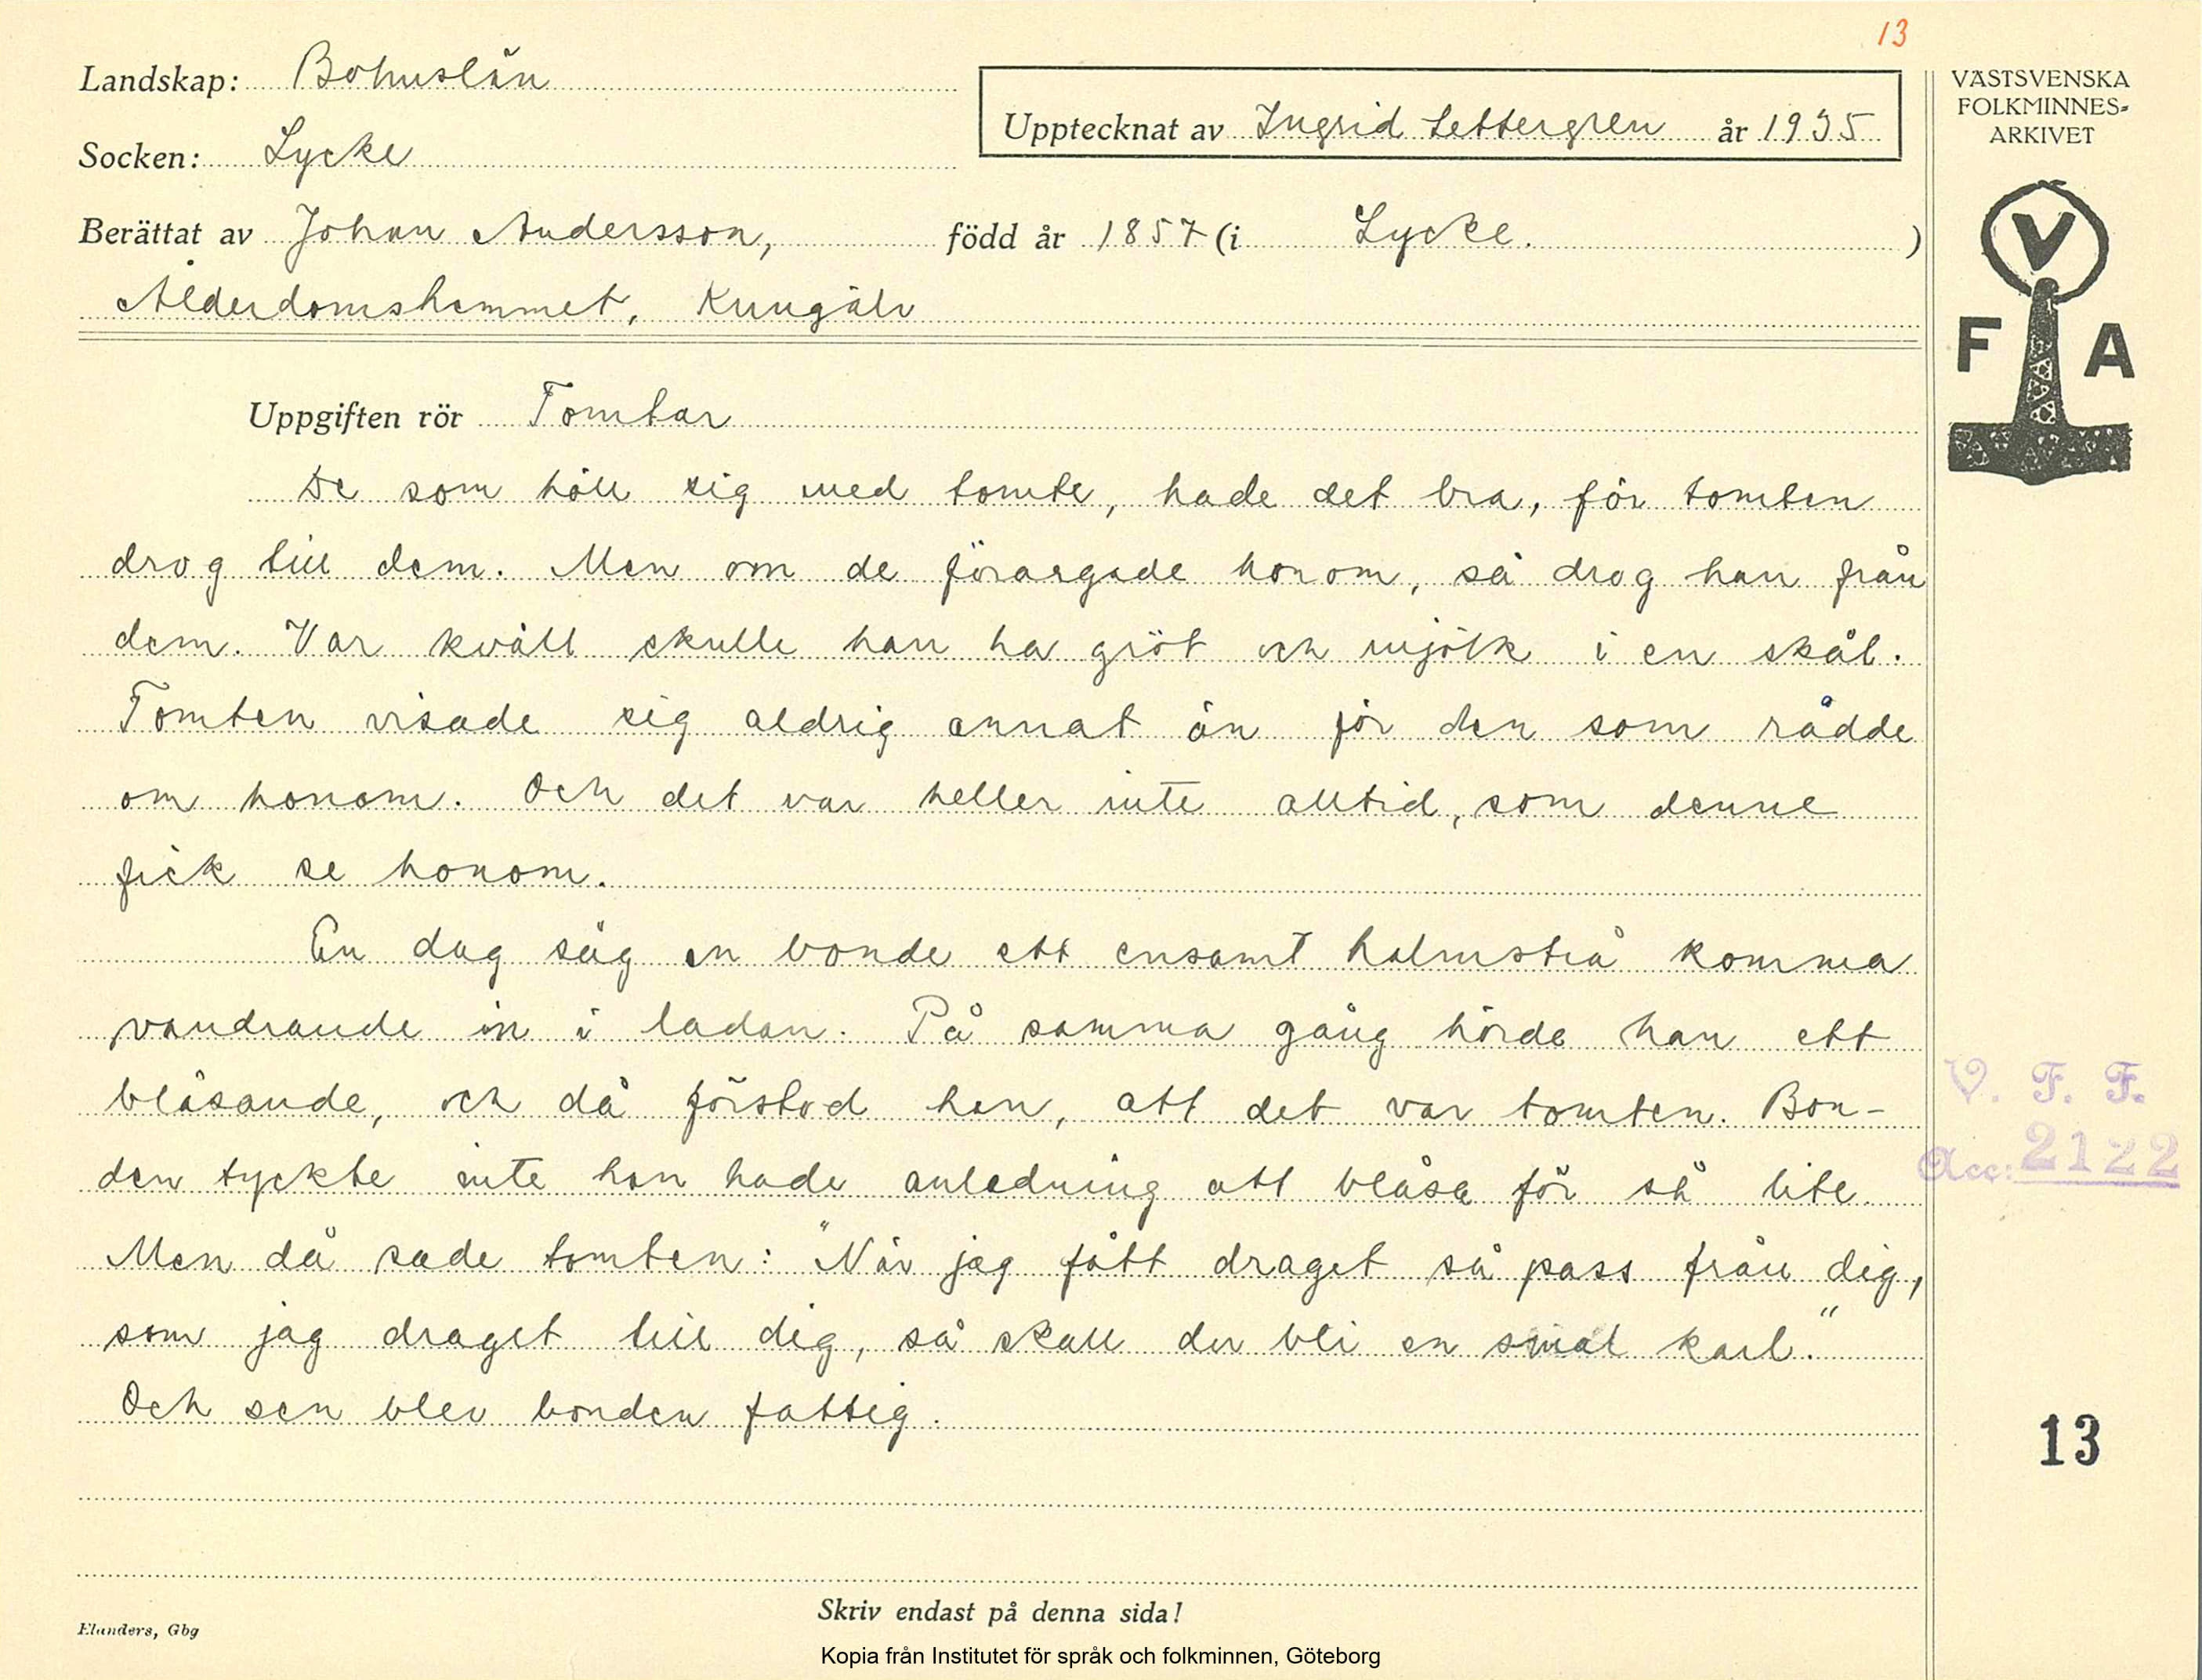 13
Landskap: Bohuslän
Socken: Lycke
Upptecknat av Ingrid Settergren år 1935
Berättat av Johan Andersson, född år 1857 (i Lycke. )
Ålderdomshemmet, Kungälv
VÄSTSVENSKA
FOLKMINNES-
ARKIVET
V
F A
Uppgiften rör Tomtar
De som höll sig med tomte, hade det bra, för tomten
drog till dem. Men om de förargade honom, så drog han från
dem. Var kväll skulle han ha gröt och mjölk i en skål.
Tomten visade sig aldrig annat än för den som rådde
om honom. Och det var heller inte alltid, som denne
fick se honom.
En dag såg en bonde ett ensamt halmstrå komma
vandrande in i ladan. På samma gång hörde han ett
blåsande, och då förstod han, att det var tomten. Bon-
den tyckte inte han hade anledning att blåsa för så lite.
Men då sade tomten: "När jag fått draget så pass från dig,
som jag draget till dig, så skall du bli en smal karl."
Och sen blev bonden fattig.
V. F. F.
Acc: 2122
13
Skriv endast på denna sida!
Elanders, Gbg
Kopia från Institutet för språk och folkminnen, Göteborg